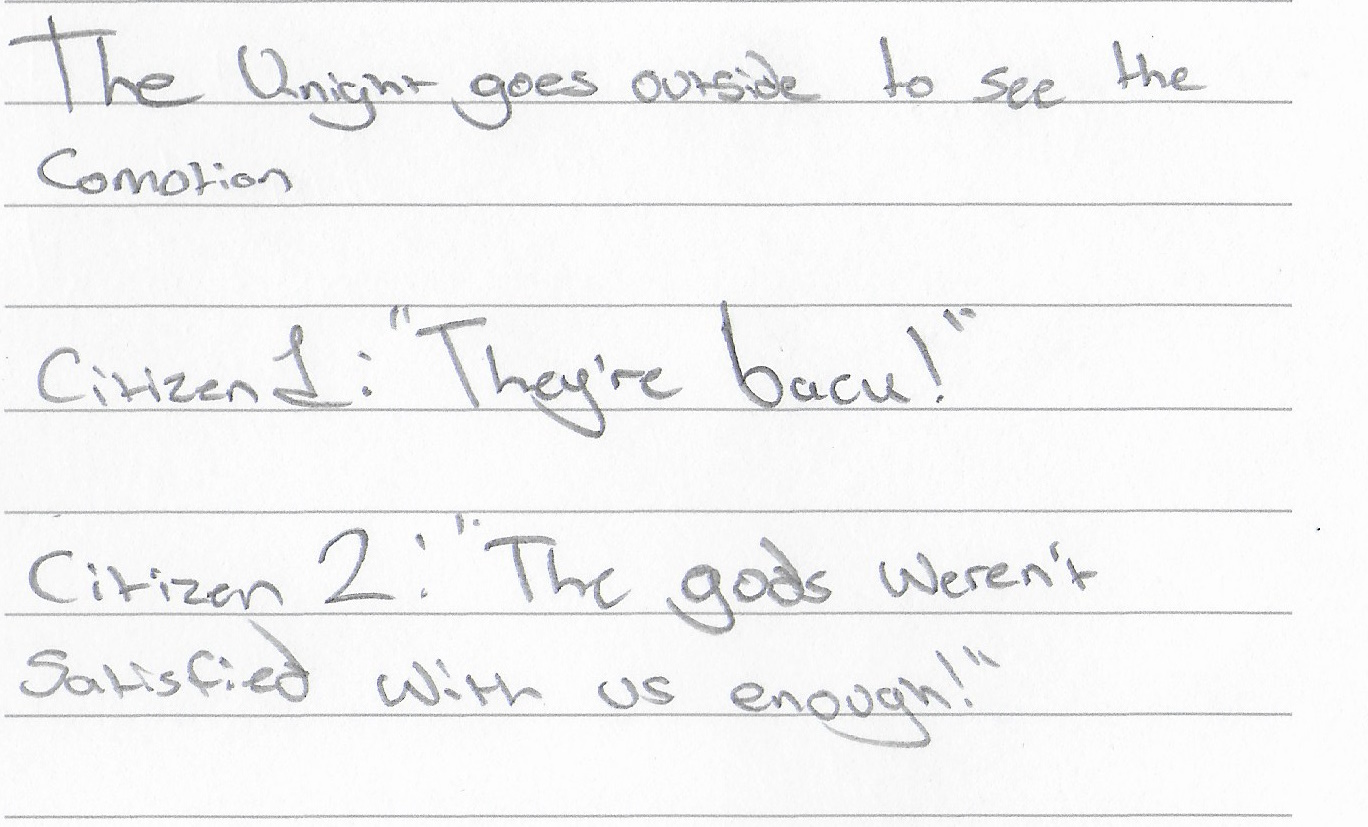 The Knight goes outside to see the
Comotion
Citizen 1: "They're back!"
Citizen 2: "The gods weren't
Satisfied with us enough!"